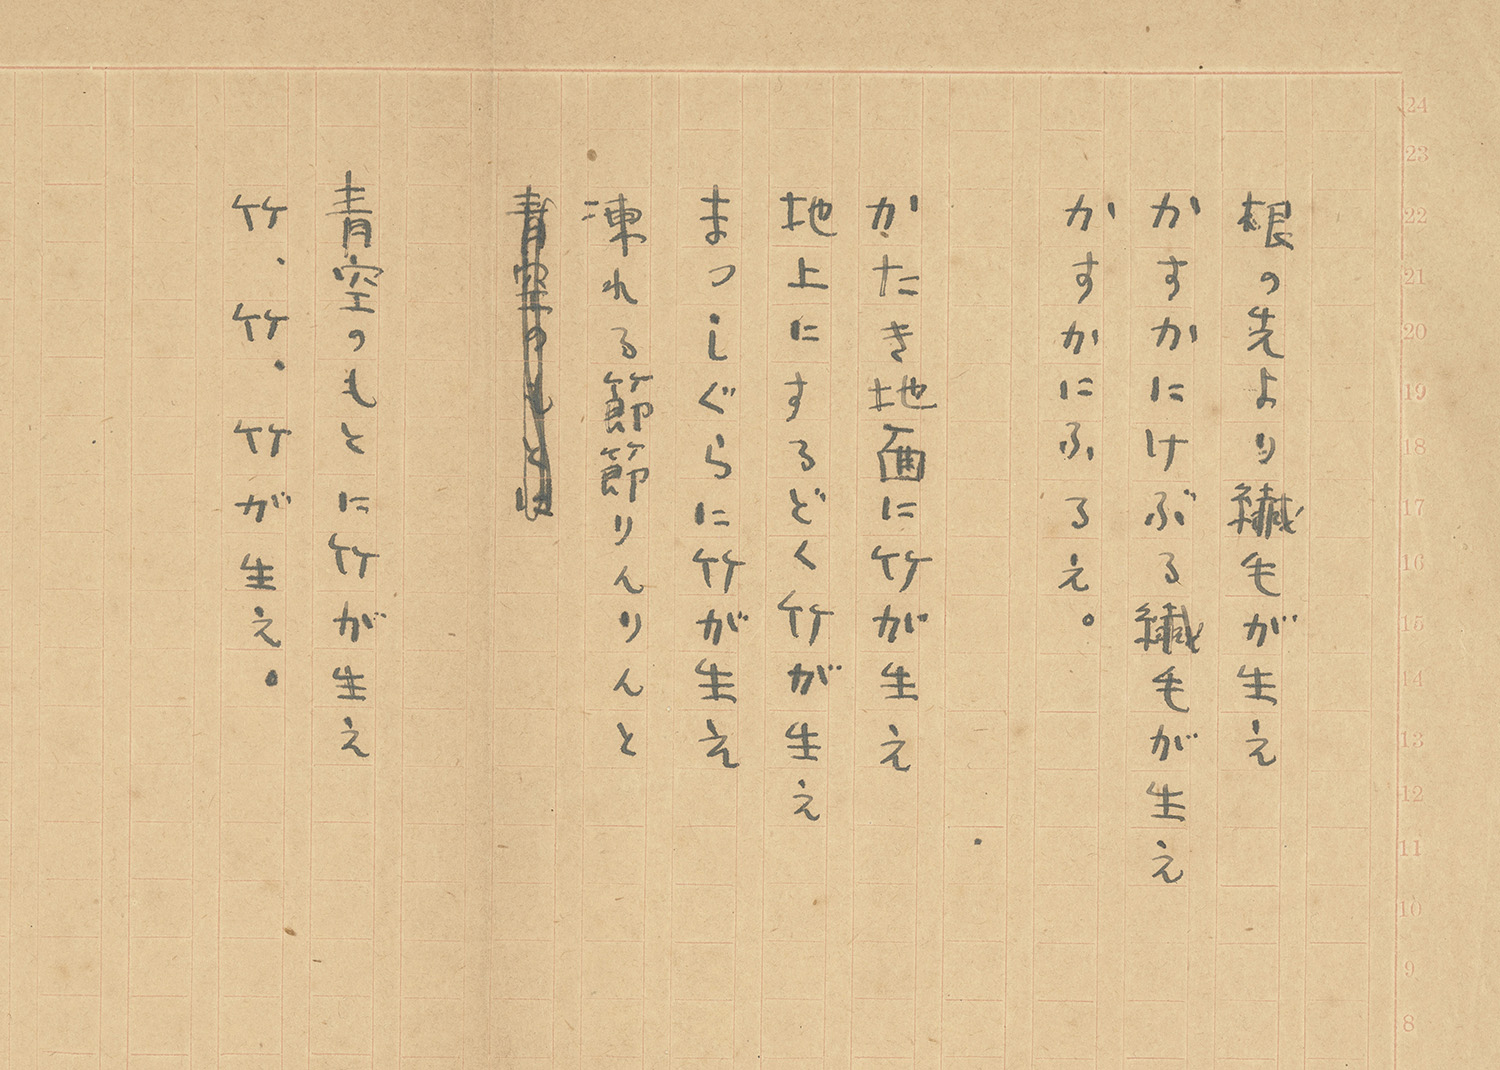 根の先より纎毛が生え
かすかにけぶる纎毛が生え
かすかにふるえ。
かたき地面に竹が生え
地上にするどく竹が生え
まつしぐらに竹が生え
凍れる節節りんりんと
青空のもとは
青空のもとに竹が生え
竹、竹、竹が生え。
24
23
22
21
20
19
18
17
16
15
14
13
12
11
10
9
8